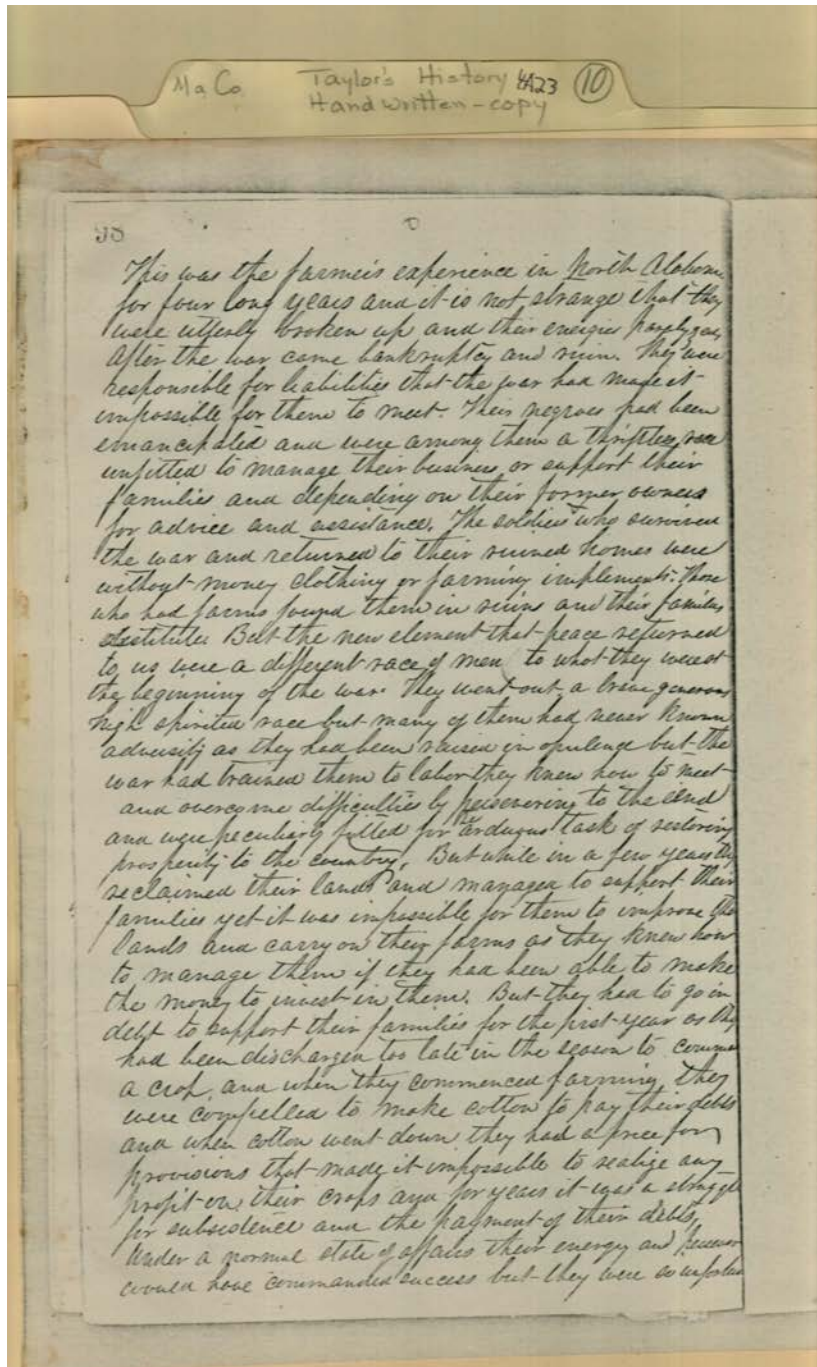 MaCo Taylor's History 4A23 10
Handwritten-copy
This was the farmer's experience in North Alabama
for four long years and it is not strange that they
were utterly broken up and their energies
After the war came bankruptcy and ruin. They were
responsible for liabilities that the war had made it
impossible for them to meet. Their negroes had been
emancipated and were among them a thriftless race
unfitted to manage their business, or support their
families and depending on their former owners
for advice and assistance. The soldiers who survived
the war and returned to their ruined homes were
without money clothing or farming implements. Those
who had farms found them in ruins and their families
destitute. But the new element that peace returned
to us were a different race of men to what they were at
the beginning of the war. They went out a brave generous
high spirited race but many of them had never known
adversity as they had been raised in opulence but the
war had trained them to labor they knew how to meet
and overcome difficulties by persevering to the end
and were peculiarly fitted for the arduous task of restoring
prosperity to the country. But while in a few years they
reclaimed their lands and managed to support their
families yet it was impossible for them to improve the
lands and carry on their farms as they knew how
to manage them if they had been able to make
the money to invest in them. But they had to go in
debt to support their families for the first year as they
had been discharged too late in the season to
a crop, and when they commenced farming they
were compelled to make cotton to pay their debts
and when cotton went down they had a price for
provisions that made it impossible to realize any
profit on their crops and for years it was a struggle
for subsistence and the payment of their debts.
Under a normal state of affairs their energy and
would have commanded success but they were so